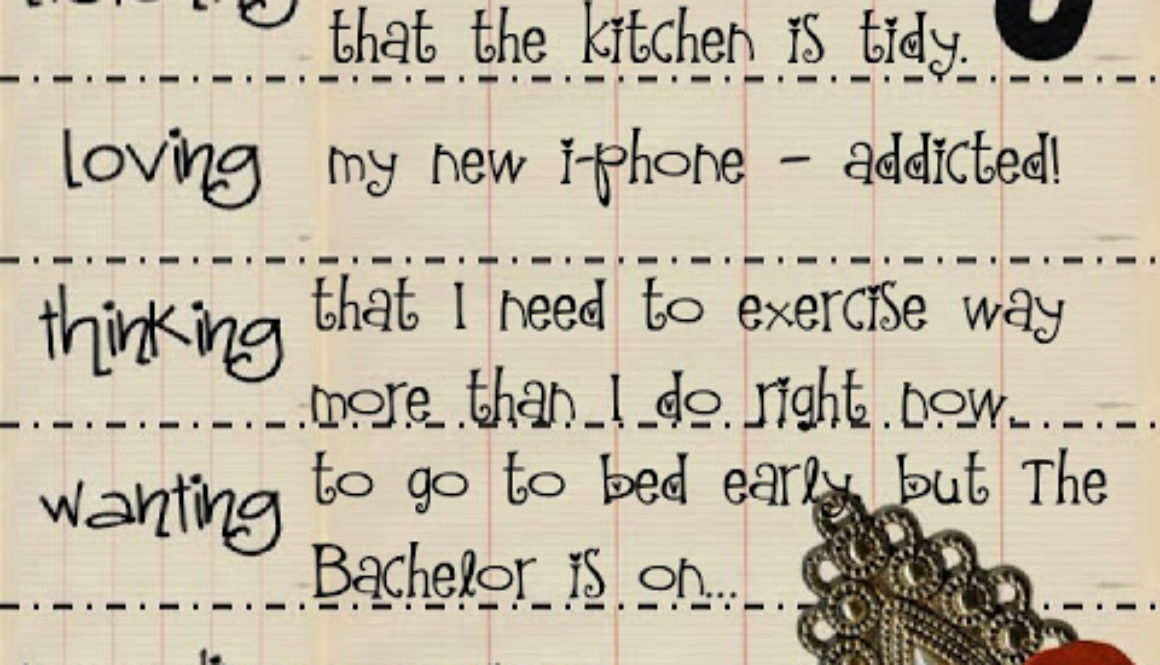 that the kitchen is tidy.
loving my new i-phone - addicted!
thinking that I need to exercise way
more than I do right now.
wanting to go to bed early but The
Bachelor is on...